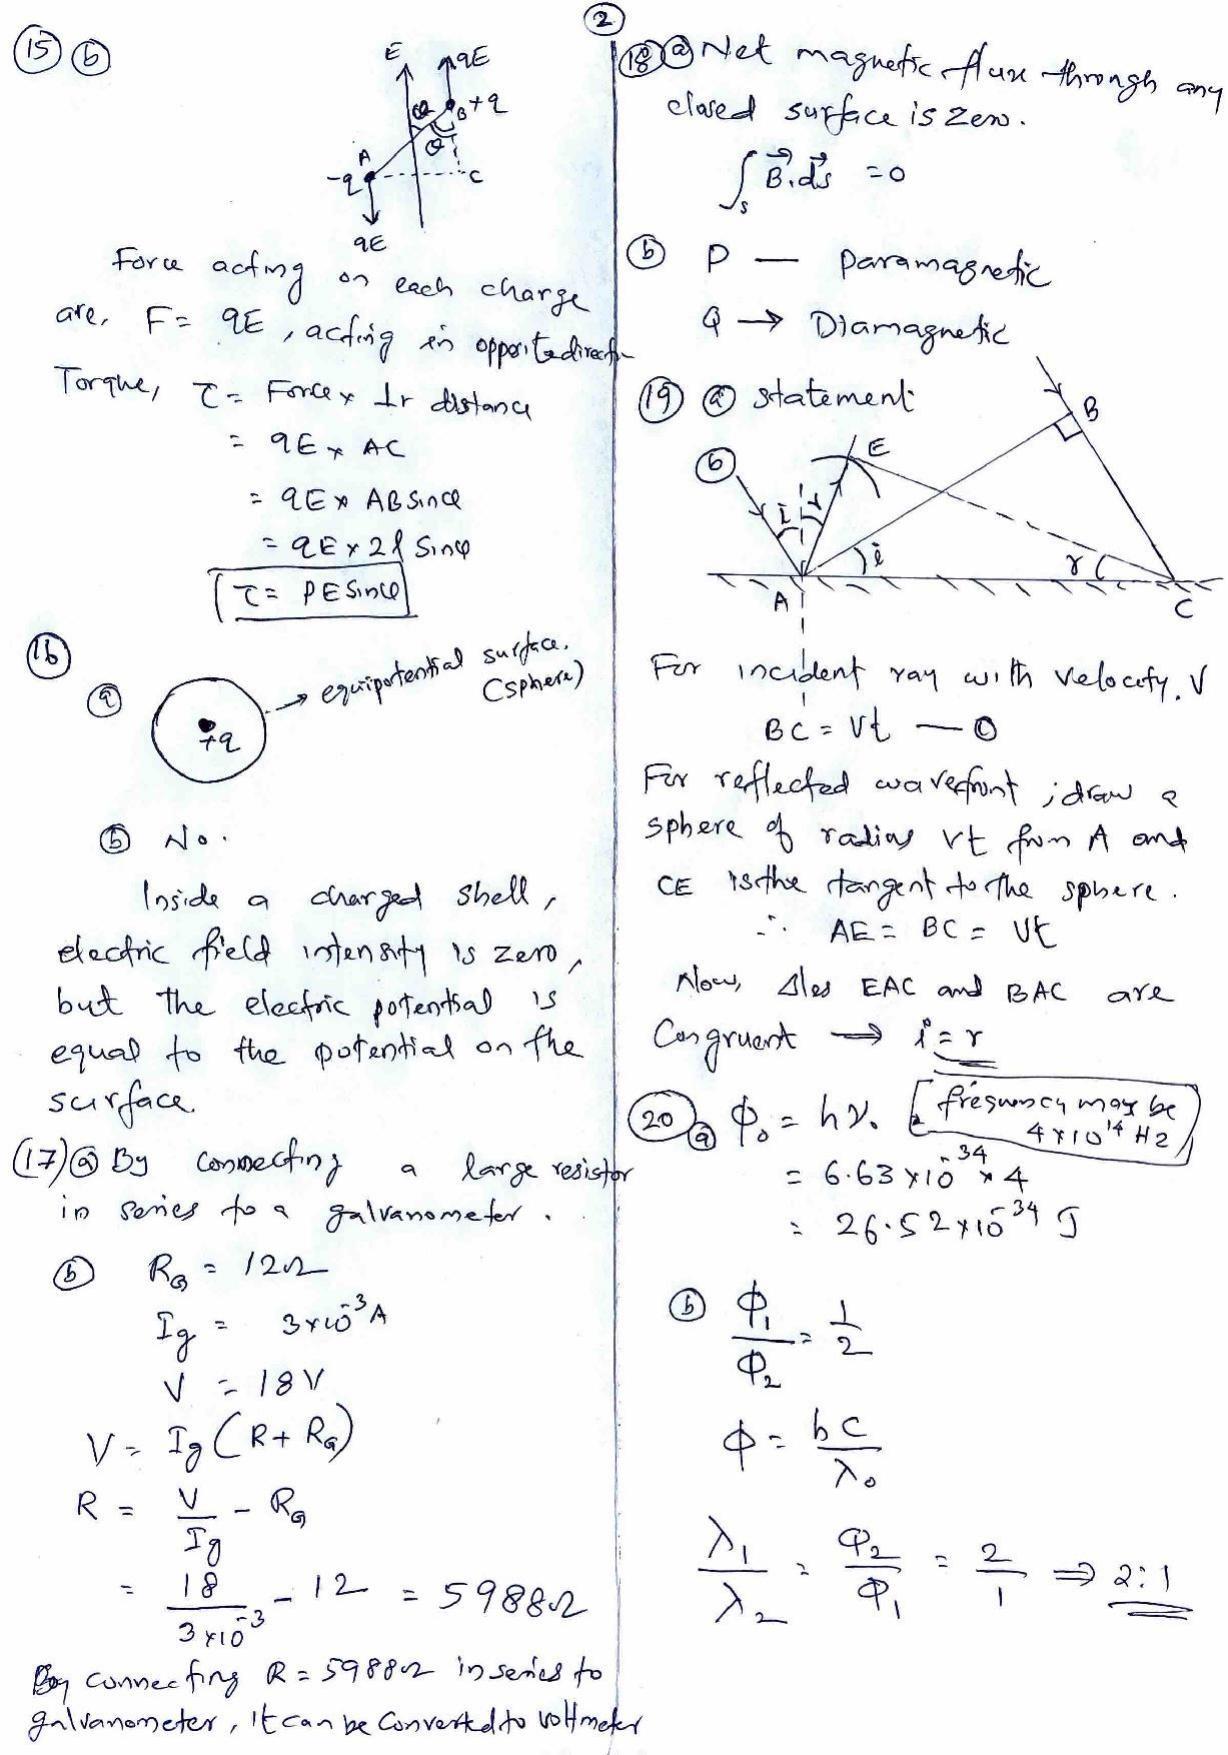 2
15 b
E
qE
φ
B +q
θ
A
-q
C
qE
Force acting on each charge
are, F = qE, acting in opposite directn
Torque, τ = Force x ⊥r distance
= qE x AC
= qE x AB sinφ
= qE x 2l sinφ
τ = PE sinφ
16
a
+q
equipotential surface.
(sphere)
b No.
Inside a charged shell,
electric field intensity is zero,
but the electric potential is
equal to the potential on the
surface.
(17) a By connecting a large resistor
in series to a galvanometer.
b R_G = 12Ω
Ig = 3x10^-3 A
V = 18V
V = Ig (R + R_G)
R = V/Ig - R_G
= 18/(3x10^-3) - 12 = 5988Ω
By connecting R = 5988Ω in series to
galvanometer, it can be converted to voltmeter
18 a Net magnetic flux through any
closed surface is zero.
∫s B⃗.ds⃗ = 0
b P — paramagnetic
Q → Diamagnetic
19 a statement
b
E
B
i r
i
r
A
C
For incident ray with velocity. V
BC = Vt — ①
For reflected wavefront ; draw a
sphere of radius vt from A and
CE is the tangent to the sphere.
∴ AE = BC = Vt
Now, Δles EAC and BAC are
Congruent → i = r
20 a φ₀ = hν₀ [frequency may be
4x10^14 Hz]
= 6.63x10^-34 x 4
= 26.52x10^-34 J
b φ₁/φ₂ = 1/2
φ = hc/λ₀
λ₁/λ₂ = φ₂/φ₁ = 2/1 ⇒ 2:1